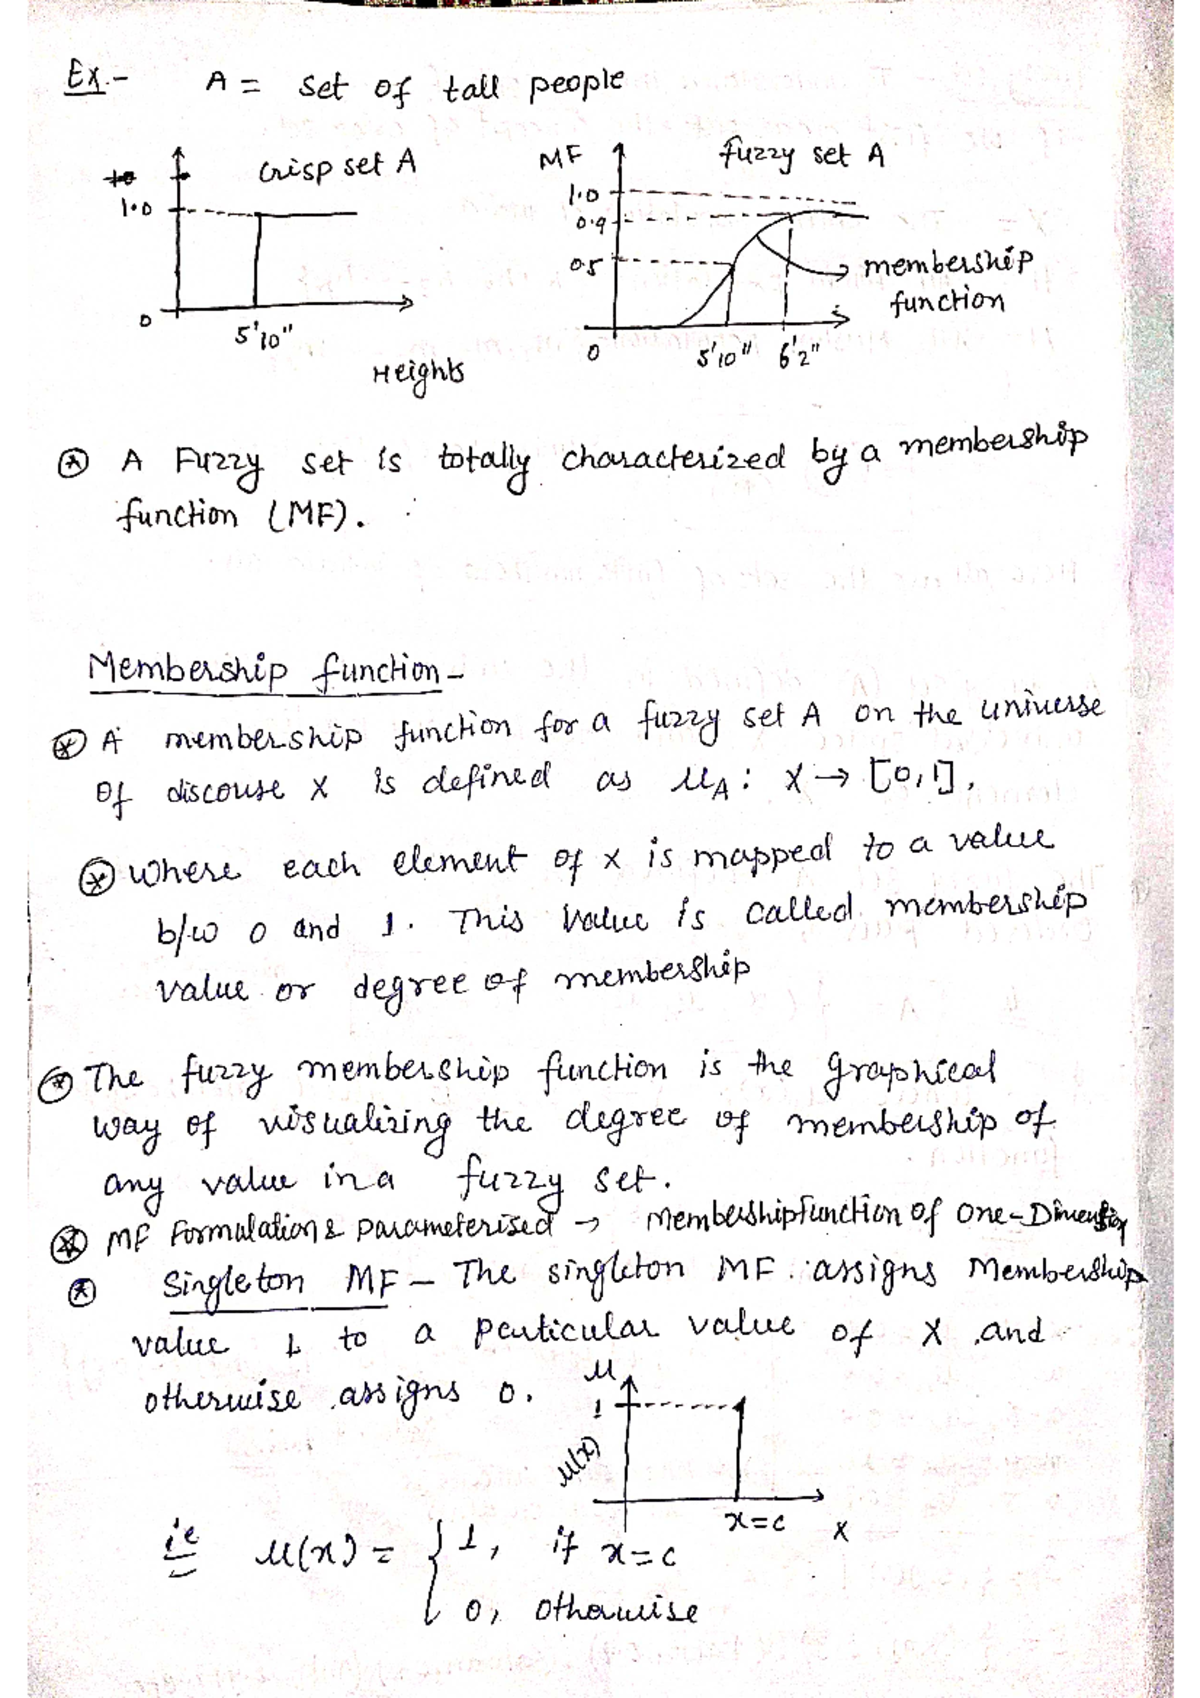 Ex.- A = set of tall people
crisp set A
1.0
0
5'10"
Heights
MF
fuzzy set A
1.0
0.9
0.5
membership
function
0
5'10" 6'2"
A Fuzzy set is totally characterized by a membership
function (MF).
Membership function -
A membership function for a fuzzy set A on the universe
of discouse X is defined as μA: X → [0,1],
where each element of x is mapped to a value
b/w 0 and 1. This value is called membership
value or degree of membership
The fuzzy membership function is the graphical
way of visualizing the degree of membership of
any value in a fuzzy set.
MF Formulation & parameterised → Membership function of One-Dimension
Singleton MF - The singleton MF assigns Membership
value 1 to a particular value of X and
otherwise assigns 0.
μ
1
μ(x)
x=c
X
ie μ(x) = { 1, if x=c
0, otherwise